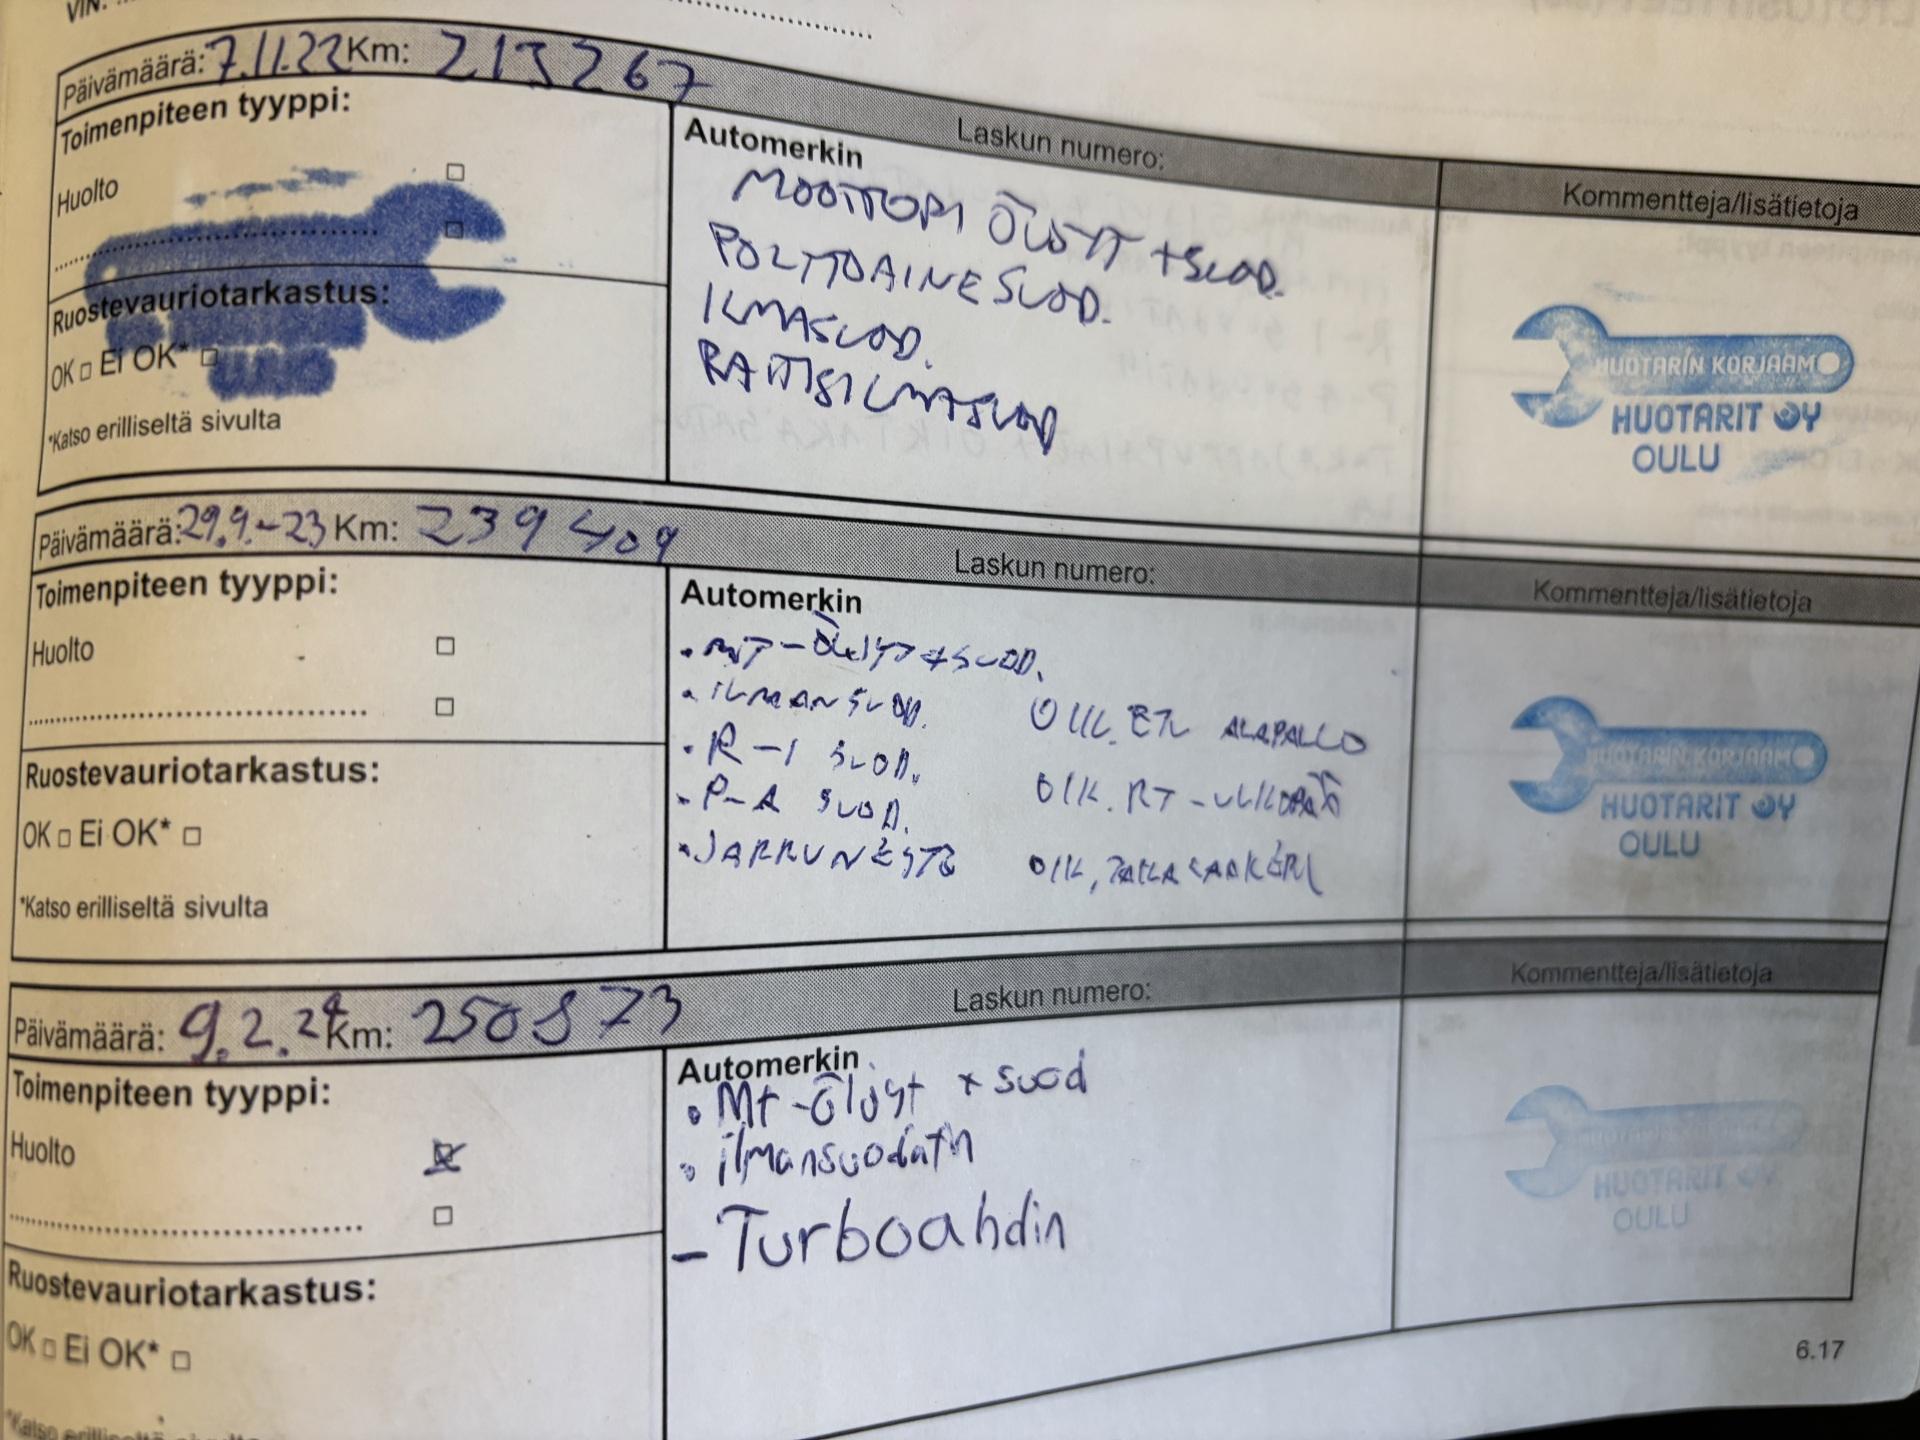 VIN:
Päivämäärä: 7.11.22 Km: 213267
Laskun numero:
Kommentteja/lisätietoja
Toimenpiteen tyyppi:
Huolto
Ruostevauriotarkastus:
OK □ Ei OK* □
*Katso erilliseltä sivulta
Automerkin
MOOTTORI ÖLJYT + SUOD.
POLTTOAINESUOD.
ILMASUOD.
RAITISILMASUOD
HUOTARIN KORJAAMO
HUOTARIT OY
OULU
Päivämäärä: 29.9.-23 Km: 239409
Laskun numero:
Kommentteja/lisätietoja
Toimenpiteen tyyppi:
Huolto
Ruostevauriotarkastus:
OK □ Ei OK* □
*Katso erilliseltä sivulta
Automerkin
• MT-ÖLJYT + SUOD.
• ILMANSUOD.
• R-I SUOD.
• P-A SUOD.
• JARRUNESTE
OIK. ETU ALAPALLO
OIK. RT-ULKOPÄÄ
OIK. TAKA
HUOTARIN KORJAAMO
HUOTARIT OY
OULU
Päivämäärä: 9.2.24 Km: 250873
Laskun numero:
Kommentteja/lisätietoja
Toimenpiteen tyyppi:
Huolto
Ruostevauriotarkastus:
OK □ Ei OK* □
*Katso erilliseltä sivulta
Automerkin
• Mt-öljyt + suod
• ilmansuodatin
- Turboahdin
HUOTARIT OY
OULU
6.17